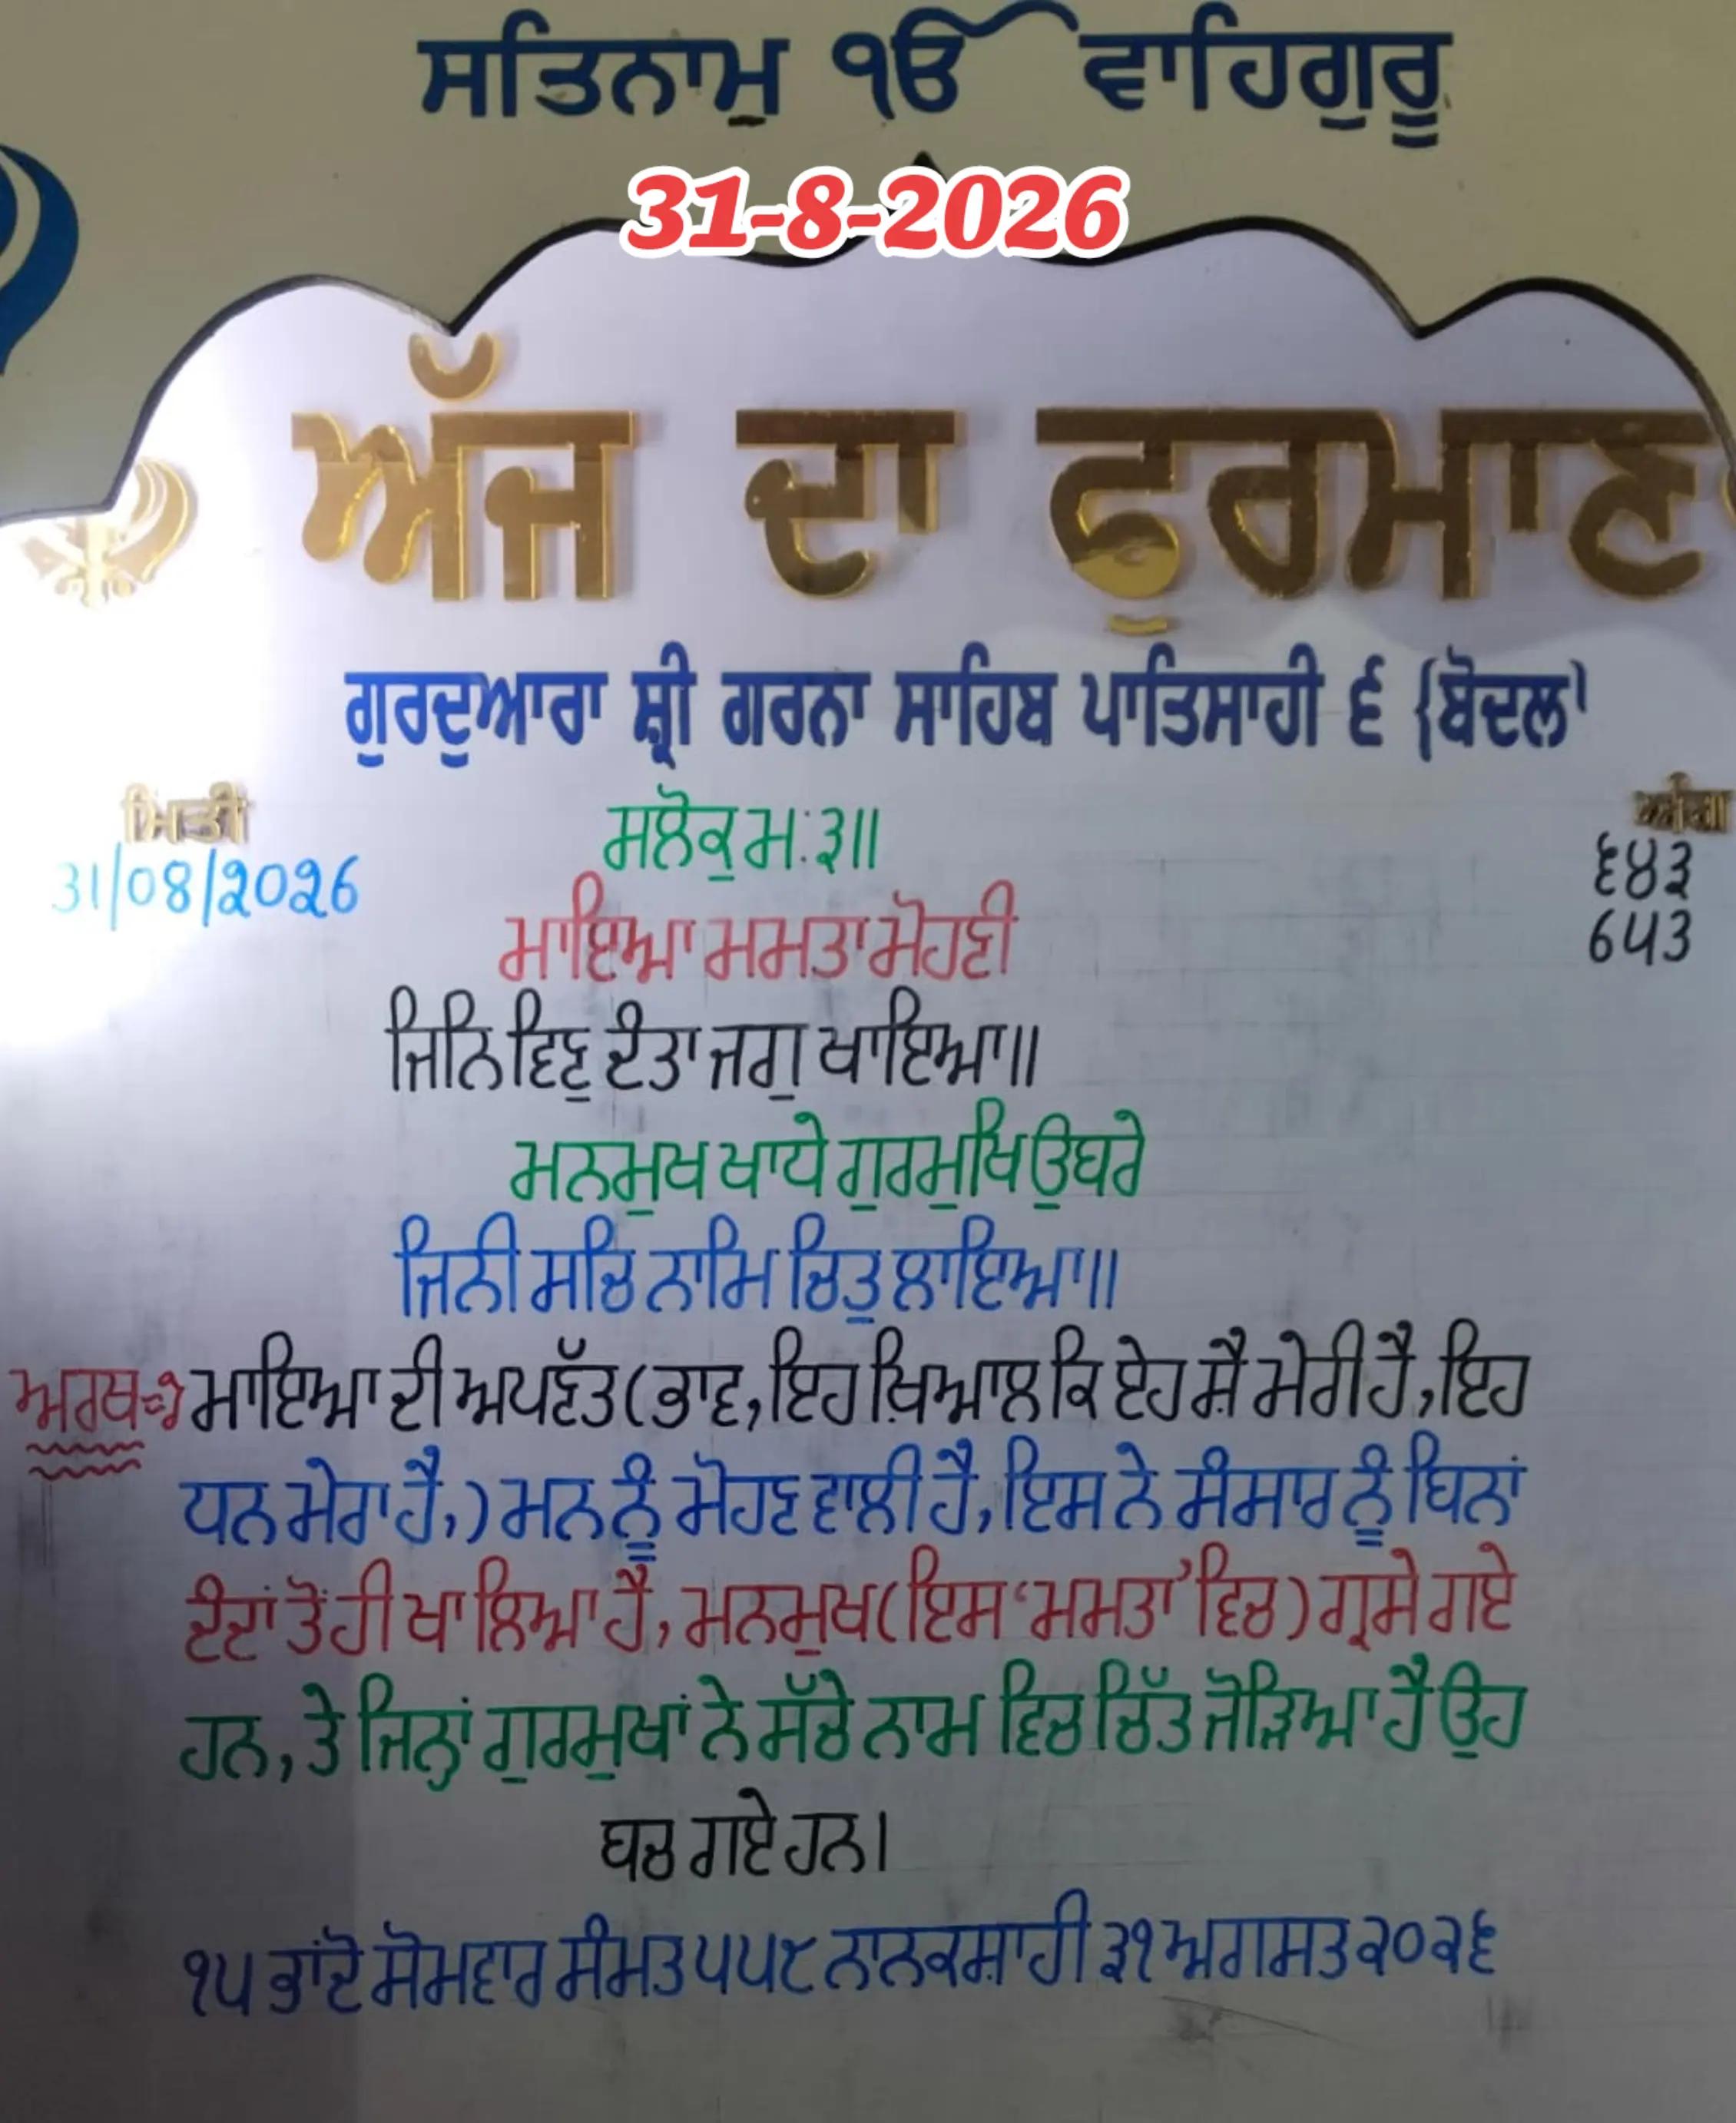 ਸਤਿਨਾਮੁ ੴ ਵਾਹਿਗੁਰੂ
31-8-2026
ਅੱਜ ਦਾ ਫੁਰਮਾਣ
ਗੁਰਦੁਆਰਾ ਸ਼੍ਰੀ ਗਰਨਾ ਸਾਹਿਬ ਪਾਤਿਸਾਹੀ ੬ {ਬੋਦਲ
ਮਿਤੀ
31/08/2026
ਅੰਗ
੬੪੩
643
ਸਲੋਕੁ ਮ: ੩॥
ਮਾਇਆ ਮਮਤਾ ਮੋਹਣੀ
ਜਿਨਿ ਵਿਣੁ ਦੰਤਾ ਜਗੁ ਖਾਇਆ॥
ਮਨਮੁਖ ਖਾਧੇ ਗੁਰਮੁਖਿ ਉਬਰੇ
ਜਿਨੀ ਸਚਿ ਨਾਮਿ ਚਿਤੁ ਲਾਇਆ॥
ਅਰਥ ਮਾਇਆ ਦੀ ਅਪਣੱਤ (ਭਾਵ, ਇਹ ਖ਼ਿਆਲ ਕਿ ਏਹ ਸ਼ੈ ਮੇਰੀ ਹੈ, ਇਹ
ਧਨ ਮੇਰਾ ਹੈ,) ਮਨ ਨੂੰ ਮੋਹਣ ਵਾਲੀ ਹੈ, ਇਸ ਨੇ ਸੰਸਾਰ ਨੂੰ ਬਿਨਾਂ
ਦੰਦਾਂ ਤੋਂ ਹੀ ਖਾ ਲਿਆ ਹੈ, ਮਨਮੁਖ (ਇਸ ‘ਮਮਤਾ’ ਵਿਚ) ਗ੍ਰਸੇ ਗਏ
ਹਨ, ਤੇ ਜਿਨ੍ਹਾਂ ਗੁਰਮੁਖਾਂ ਨੇ ਸੱਚੇ ਨਾਮ ਵਿਚ ਚਿੱਤ ਜੋੜਿਆ ਹੈ ਉਹ
ਬਚ ਗਏ ਹਨ।
੧੫ ਭਾਂਦੋ ਸੋਮਵਾਰ ਸੰਮਤ ੫੫੮ ਨਾਨਕਸ਼ਾਹੀ ੩੧ ਅਗਸਤ ੨੦੨੬